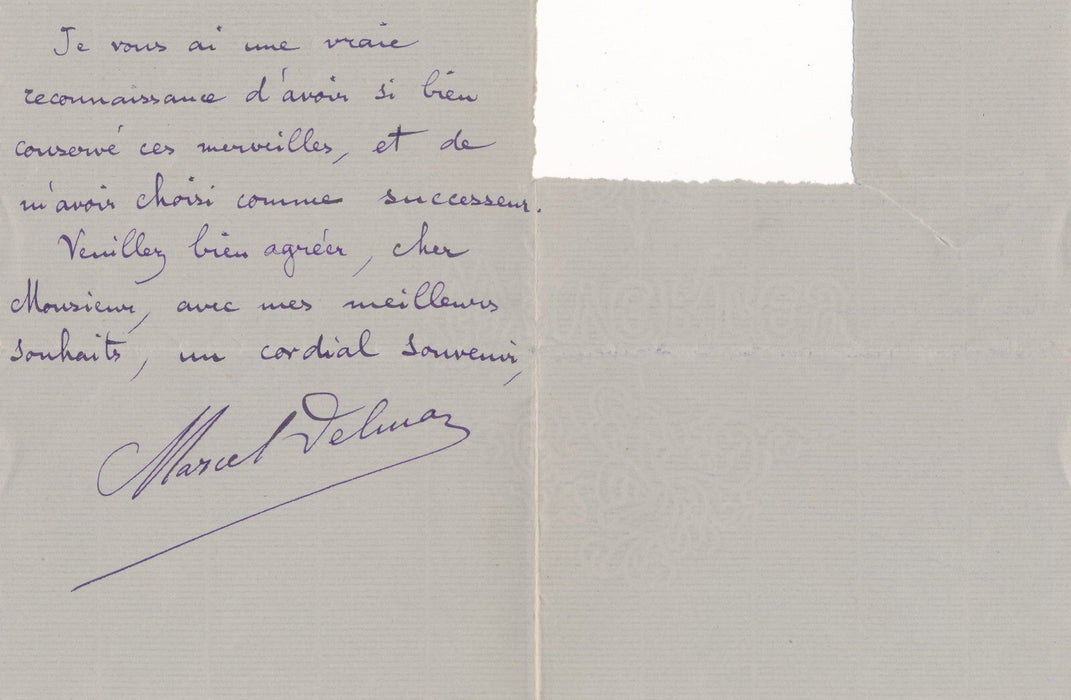 Je vous ai une vraie
reconnaissance d'avoir si bien
conservé ces merveilles, et de
m'avoir choisi comme successeur.
Veuillez bien agréer, cher
Monsieur, avec mes meilleurs
souhaits, un cordial souvenir,
Marcel Delmas